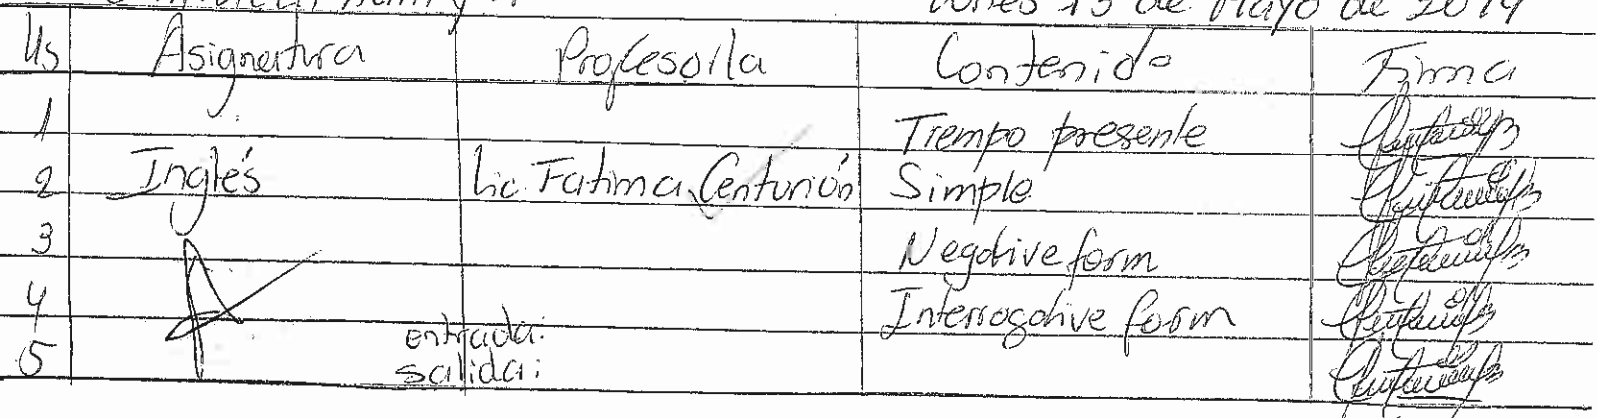 Lunes 13 de Mayo de 2019
Hs Asignatura Profesor/a Contenido Firma
1 Tiempo presente
2 Inglés Lic. Fatima Centurión Simple
3 Negative form
4 Interrogative form
entrada:
5 salida: